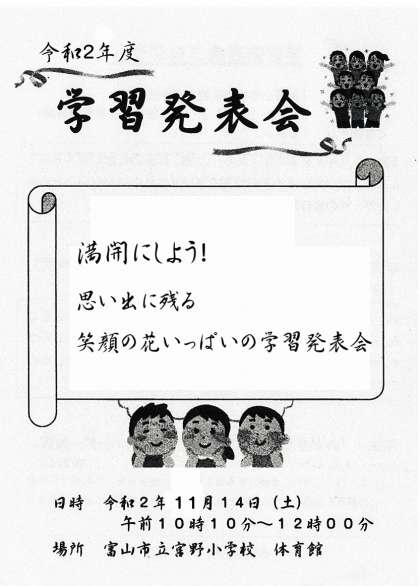 令和2年度
学習発表会
満開にしよう!
思い出に残る
笑顔の花いっぱいの学習発表会
日時　令和2年11月14日（土）
午前10時10分～12時00分
場所　富山市立宮野小学校　体育館